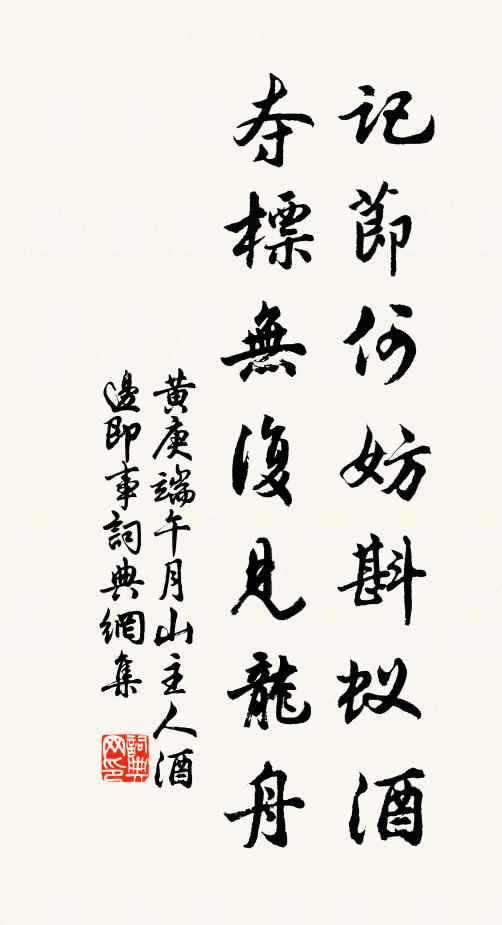 記節何妨斟蚁酒
夺標無復見龍舟
黄庚端午月山主人酒
邊即事詞典網集
詞典
网印